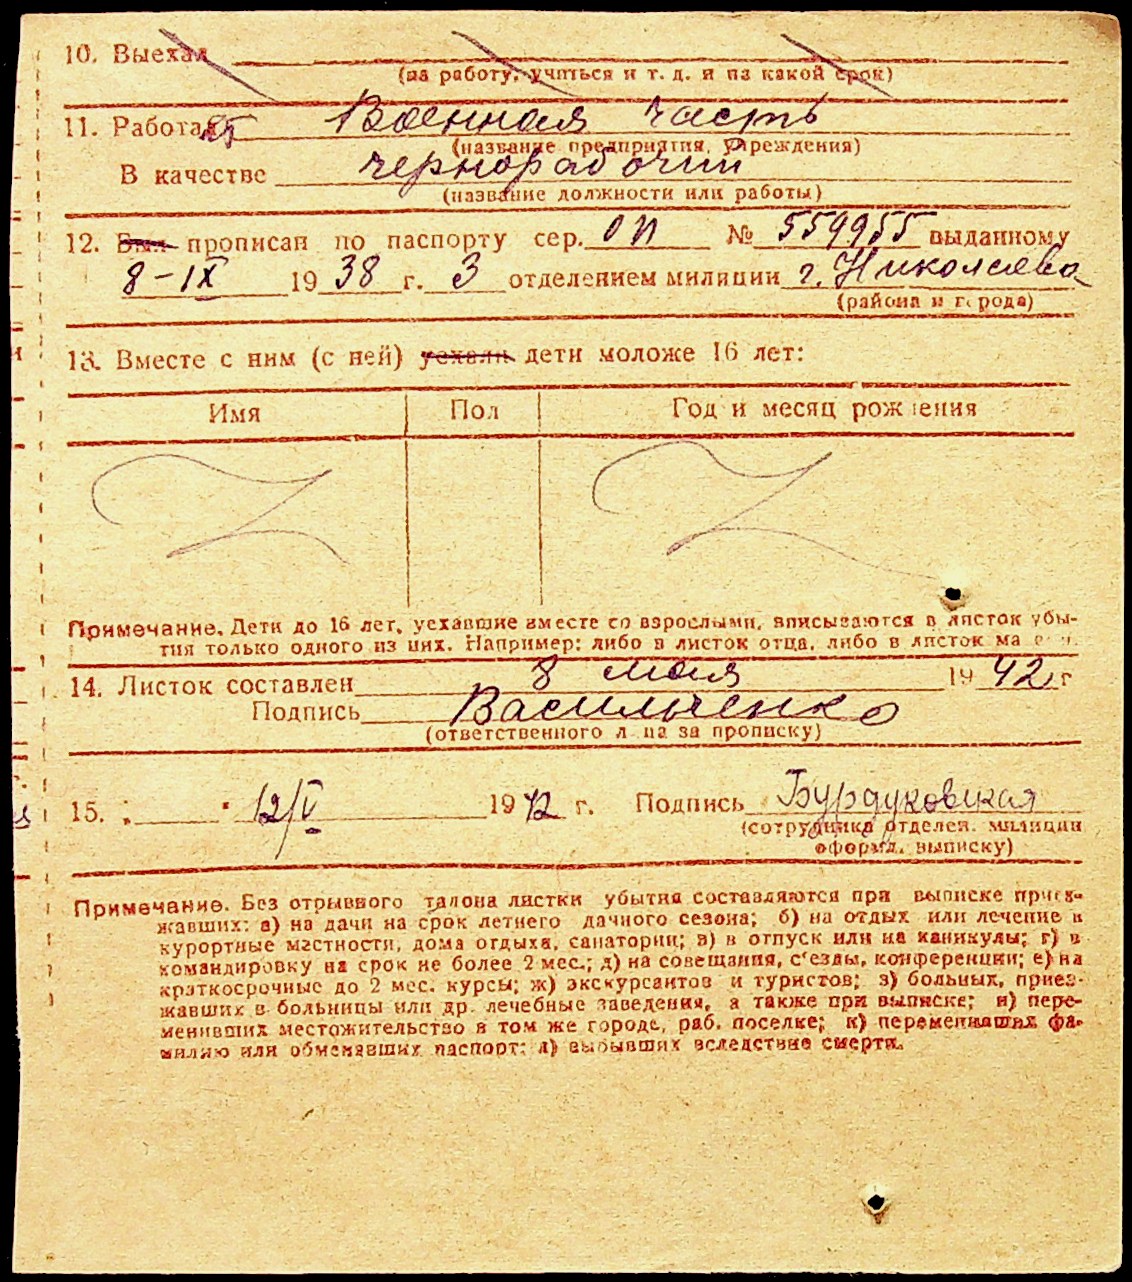 10. Выехал
(на работу, учиться и т. д. и на какой срок)
11. Работает Военная часть
(название предприятия, учреждения)
В качестве чернорабочий
(название должности или работы)
12. Был прописан по паспорту сер. ОП № 559955 выданному
8-IX 1938 г. 3 отделением милиции г. Николаева
(района и города)
13. Вместе с ним (с ней) уехали дети моложе 16 лет:
Имя Пол Год и месяц рождения
Примечание. Дети до 16 лет, уехавшие вместе со взрослыми, вписываются в листок убы-
тия только одного из них. Например: либо в листок отца, либо в листок
14. Листок составлен 8 мая 1942 г
Подпись Васильченко
(ответственного лица за прописку)
15. " " 12/V 1942 г. Подпись Бурдуковская
(сотрудника отделен. милиции
оформл. выписку)
Примечание. Без отрывного талона листки убытия составляются при выписке приез-
жавших: а) на дачи на срок летнего дачного сезона; б) на отдых или лечение в
курортные местности, дома отдыха, санатории; в) в отпуск или на каникулы; г) в
командировку на срок не более 2 мес.; д) на совещания, с'езды, конференции; е) на
краткосрочные до 2 мес. курсы; ж) экскурсантов и туристов; з) больных, приез-
жавших в больницы или др. лечебные заведения, а также при выписке; и) пере-
менивших местожительство в том же городе, раб. поселке; к) переменивших фа-
милию или обменявших паспорт; л) выбывших вследствие смерти.